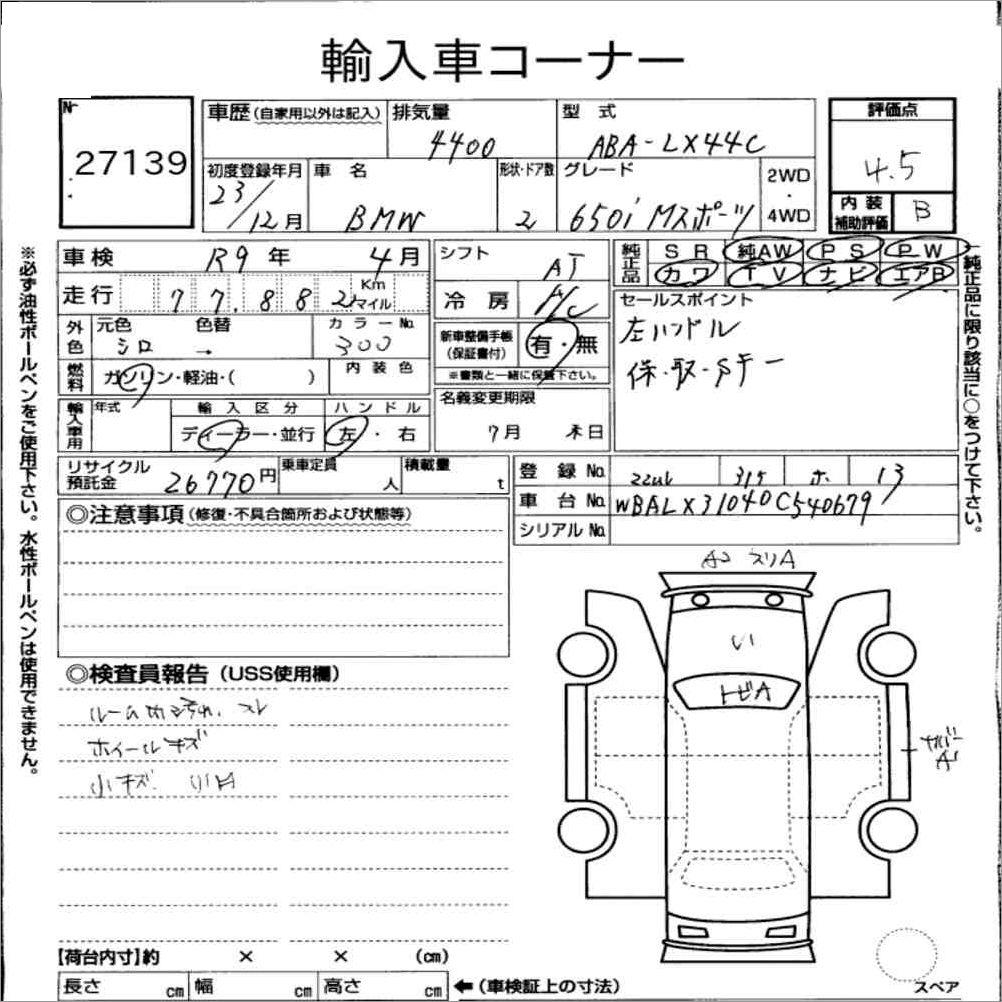 輸入車コーナー
No.
27139
車歴(自家用以外は記入)
排気量
4400
型式
ABA-LX44C
評価点
4.5
初度登録年月
23/12月
車名
BMW
形状・ドア数
2
グレード
650i Mスポーツ
2WD
・
4WD
内装
補助評価
B
車検
R9年
4月
シフト
AT
純正品
SR
純AW
PS
PW
カワ
TV
ナビ
エアB
走行
77,882
Km
マイル
冷房
A/C
セールスポイント
左ハンドル
保・取・Sキー
外色
元色
シロ
色替
→
カラーNo.
300
新車整備手帳
(保証書付)
有・無
※書類と一緒に保管下さい。
燃料
ガソリン・軽油・( )
内装色
名義変更期限
7月 末日
輸入車用
年式
輸入区分
ディーラー・並行
ハンドル
左・右
リサイクル
預託金
26770円
乗車定員
人
積載量
t
登録No.
315
ホ
13
車台No.
WBALX31040C540679
シリアルNo.
◎注意事項(修復・不具合箇所および状態等)
◎検査員報告(USS使用欄)
ルーム内汚れ、スレ
ホイールキズ
小キズ
A2 スリA
トビA
A1
スペア
【荷台内寸】約 × × (cm)
長さ cm
幅 cm
高さ cm
←(車検証上の寸法)
※必ず油性ボールペンをご使用下さい。水性ボールペンは使用できません。
純正品に限り該当に○をつけて下さい。